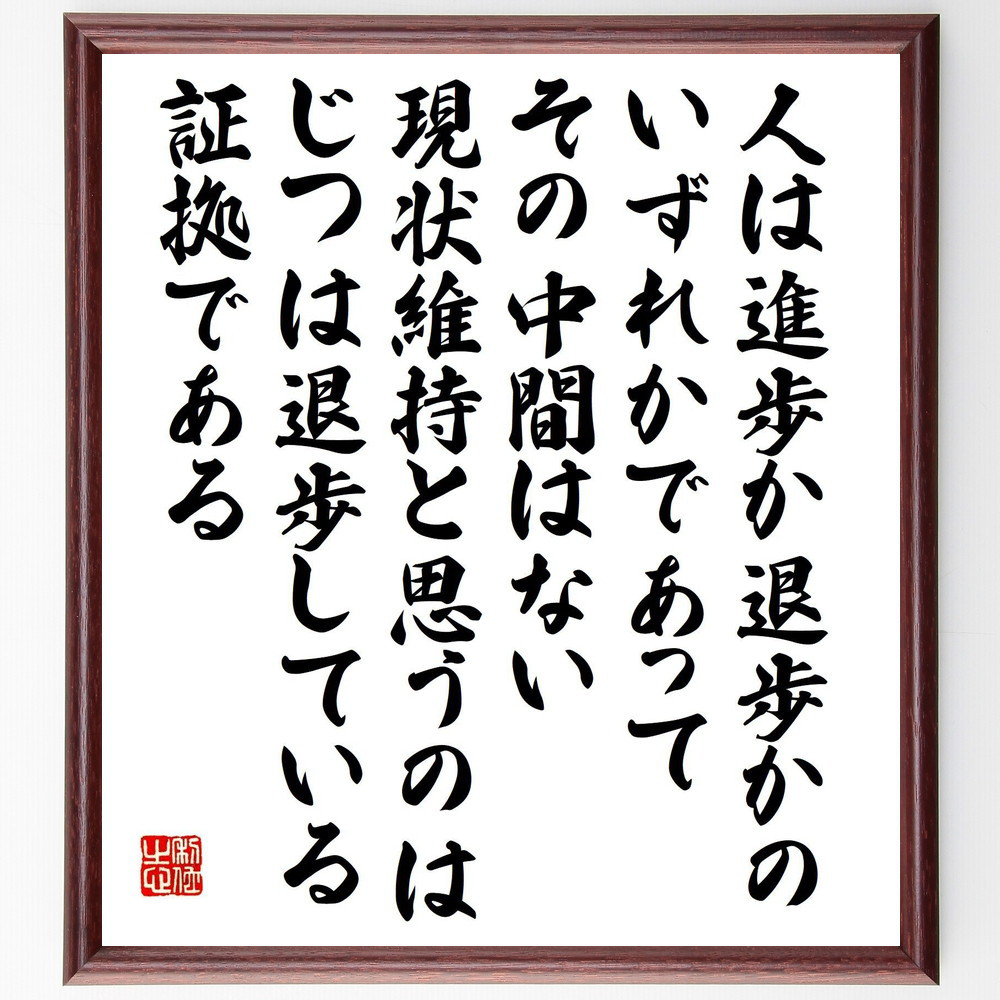 人は進歩か退歩かの
いずれかであって
その中間はない
現状維持と思うのは
じつは退歩している
証拠である